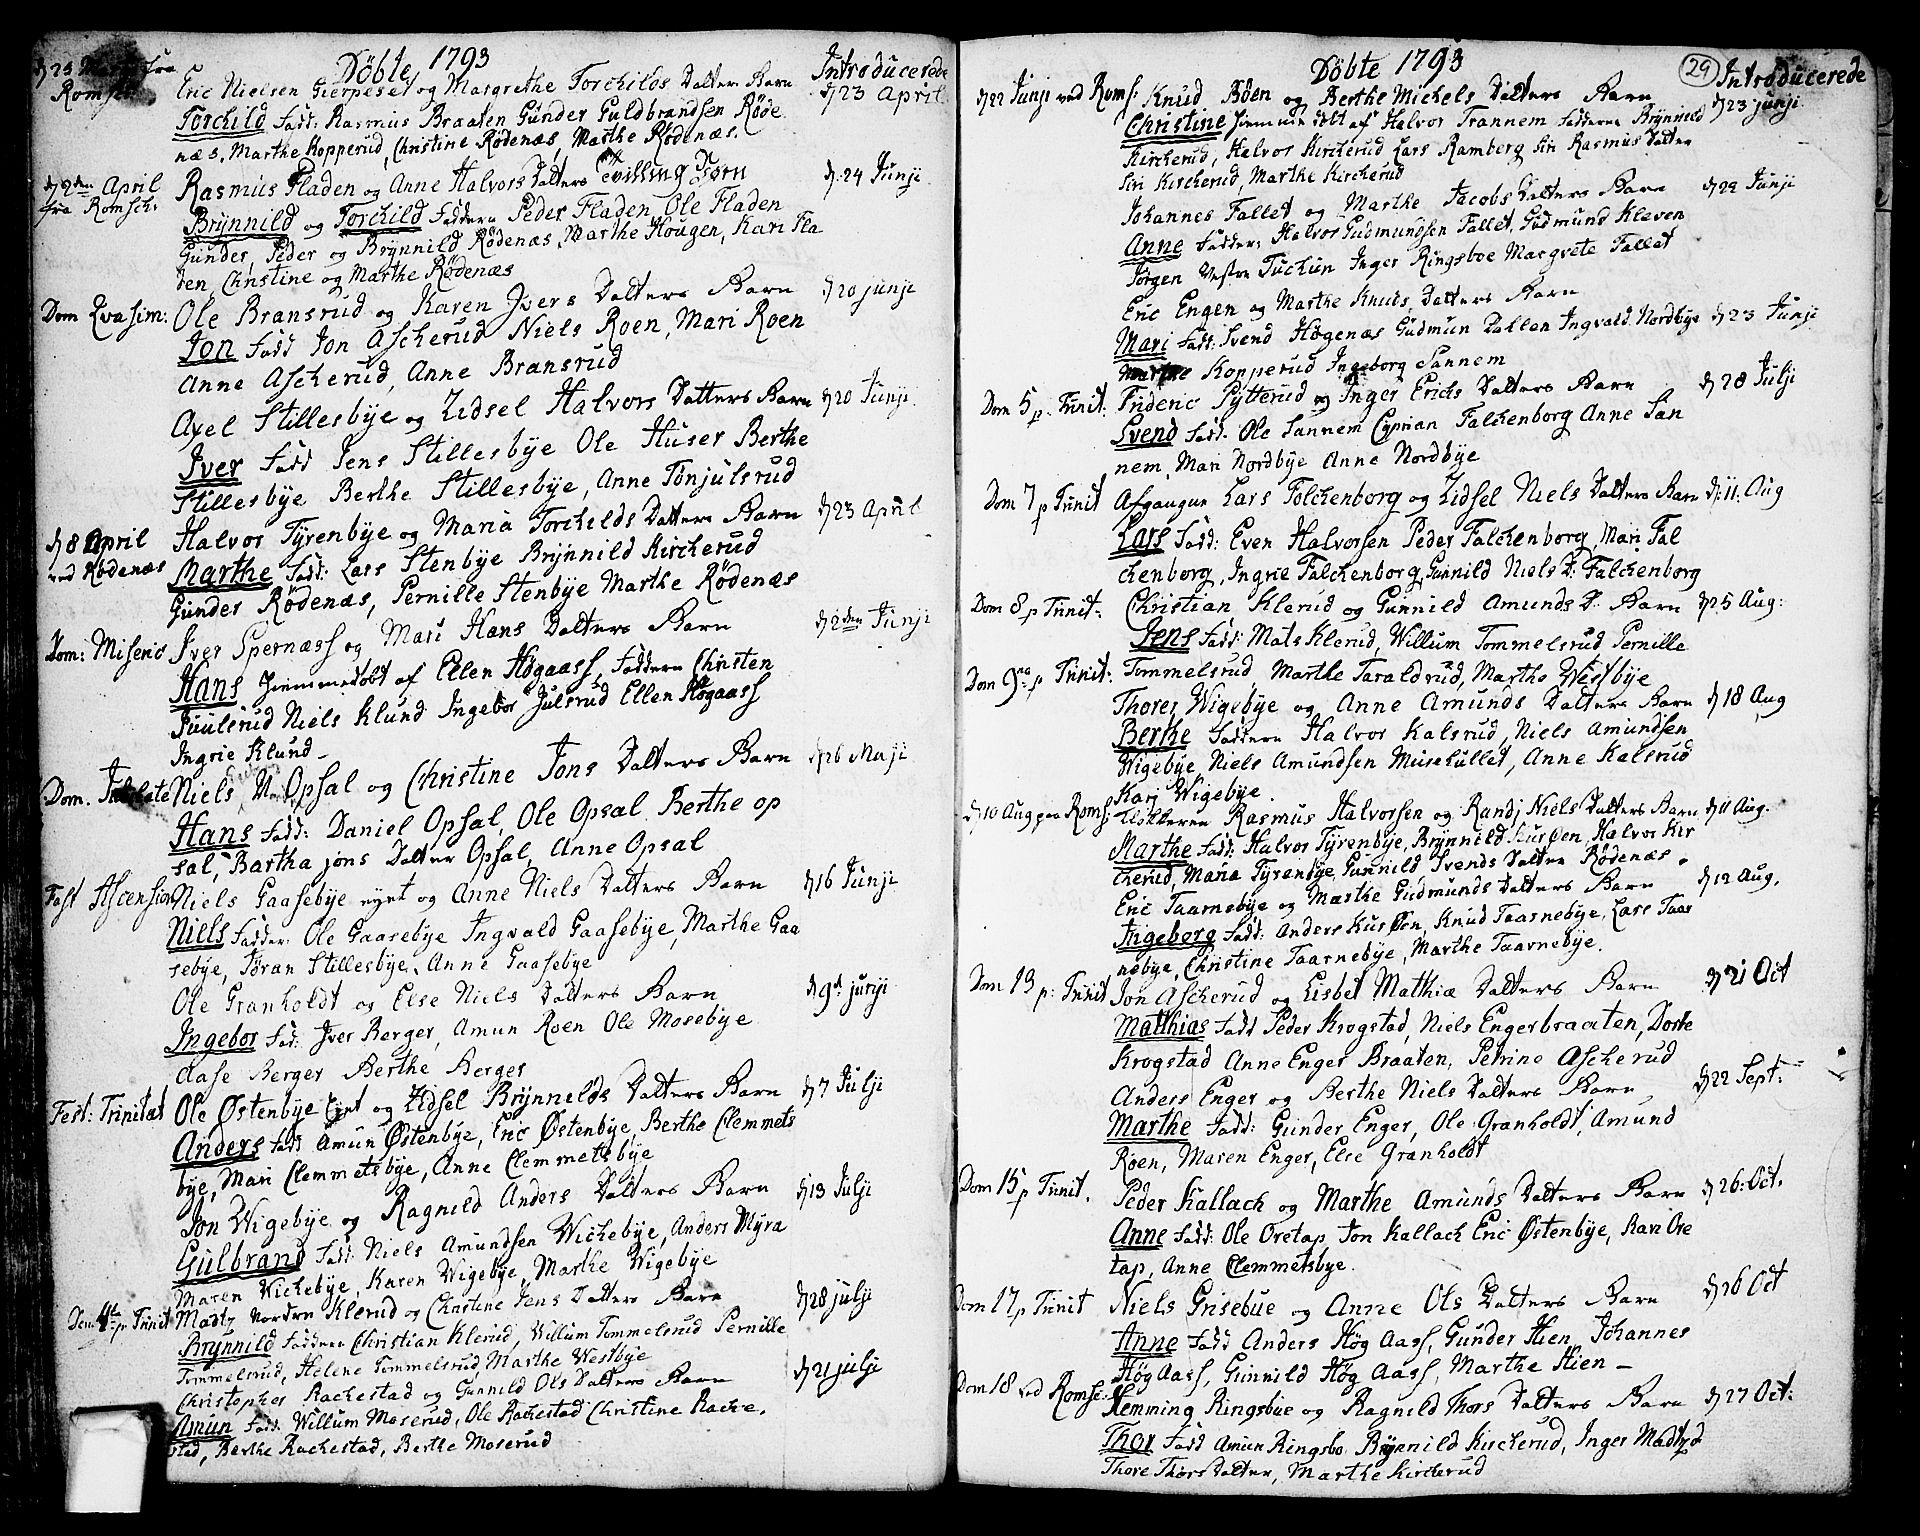 Döbte 1793
Introducerede
d 25 Martz fra
Romsch:
Eric Nielsen Gierpeset og Margrethe Torchilds Datters Barn
d 23 April
Torchild Fadd: Rasmus Braaten Gunder Guldbrandsen Røde
næs, Marthe Kopperud, Christine Rødenæs, Marthe Rødenæs.
d 2den April
fra Romsch:
Rasmus Fladen og Anne Halvors Datters Tvilling Børn
d. 24 Junji
Brÿnnild og Torchild Faddern Peder Fladen, Ole Fladen
Gunder, Peder og Brÿnnild Rødenæs, Marthe Hougen, Kari Fla
den, Christine og Marthe Rødenæs
Dom Qvasim:
Ole Bransrud og Karen Jvers Datters Barn
d 20 junji
Jon Fadd Jon Ascherud Niels Roen, Mari Roen
Anne Ascherud, Anne Bransrud
Axel Stillesbÿe og Zidsel Halvors Datters Barn
d 20 Junji.
Jver Fadd Jens Stillesbÿe Ole Huser Berthe
Stillesbÿe Berthe Stillesbÿe, Anne Tonjulsrud
d 8 April
ved Rødenæs
Halvor Tÿrenbÿe og Maria Torchilds Datters Barn
d 23 April
Marthe Fadd: Lars Stenbÿe Brÿnnild Kircherud
Gunder Rødenæs, Pernille Stenbÿe Marthe Rødenæs
Dom: Miseric
Jver Spernæss og Mari Hans Datters Barn
d 2den Junji
Hans hiemmedøbt af Ellen Høgaass, Faddern Christen
Juulsrud Niels Klund Ingebor Julsrud Ellen Høgaass
Ingrie Klund
Dom. Jubilate
Niels N. Opsal og Christine Jons Datters Barn
d 26 Maji
Hans Fadd: Daniel Opsal, Ole Opsal Berthe op
sal, Bartha jons Datter Opsal, Anne Opsal
Fest Ascension
Niels Gaasebÿe eynt og Anne Niels Datters Barn
d 16 Junji
Niels Fadder: Ole Gaasebÿe Ingvald Gaasebÿe, Marthe Gaa
sebÿe, Jøran Stillesbÿe, Anne Gaasebÿe
Ole Granholdt og Else Niels Datters Barn
d 9de junji
Ingebor Fad: Jver Berger, Amun Roen Ole Mosebÿe
Aase Berger Berthe Berger
Fest: Trinitat
Ole Østenbÿe Eynt og Zidsel Brÿnnelds Datters Barn
d 7 Julji
Anders Fadd Amun Østenbÿe, Eric Østenbÿe, Berthe Clemmets
bÿe, Mari Clemmetsbÿe, Anne Clemmetsbÿe
Jon Wigebÿe og Ragnild Anders Datters Barn
d 13 Julji
Gulbrand Fadd: Niels Amundsen Wichebÿe, Anders Mÿra
Maren Wichebÿe, Karen Wigebÿe, Marthe Wigebÿe
Dom 4te p Trinit
Madtz Nordrn Klerud og Christine Jens Datters Barn
d 28 julji
Brÿnnild Faddern Christian Klerud, Willum Tommelsrud Pernille
Tommelsrud, Helene Tommelsrud, Marthe Westbÿe
Christopher Rachestad og Gunnild Ols Datters Barn
d 21 julji
Amun Fadd: Willum Moserud, Ole Rachestad Christine Rache
stad, Berthe Rachestad, Berthe Moserud
Döbte 1793
29
Introducerede
d 22 Junji ved Roms:
Knud Bøen og Berthe Michels Datters Barn
d 23 junji
Christine hiemme døbt af Halvor Trannem Fadderne Brÿnnild
Kircherud, Halvor Kircherud Lars Ramberg Siri Rasmus Datter
Siri Kircherud, Marthe Kircherud
Johannes Fallet og Marthe Jacobs Datters Barn
d 22 Junji
Anne Fadder, Halvor Gudmundsen Fallet, Gudmund Kleven
Jörgen Vestre Tuchun Inger Ringsboe Margrete Fallet
Eric Engen og Marthe Knuds Datters Barn
d 23 Junji
Mari Fadd: Svend Høgenæs Gudmun Dallen Ingvald Nordbÿe
Marthe Kopperud Ingeborg Sannem
Dom 5 p. Trinit:
Frideric Pÿtterud og Inger Erichs Datters Barn
d 28 Julji
Svend Fadd: Ole Sannem Cyprian Falchenborg Anne San
nem, Mari Nordbÿe Anne Nordbÿe
Dom 7 p Trinit
Afgangne Lars Folchenborg og Zidsel Niels Datters Barn
d: 11. Aug
Lars Fadd: Even Halvorsen Peder Falchenborg, Mari Fal
chenborg, Ingrie Falchenborg, Gunnild Niels D: Falchenborg
Dom 8 p Trinit:
Christian Klerud og Gunnild Amunds D. Barn
d 25 Aug:
Jens Fadd: Mats Klerud, Willum Tommelsrud Pernille
Tommelsrud Marthe Taraldrud, Marthe Westbÿe
Dom 9na p Trinit:
Thorer Wigebÿe og Anne Amunds Datters Barn
d 18 Aug
Berthe Faddern Halvor Kalsrud, Niels Amundsen
Wigebÿe Niels Amundsen Musekullet, Anne Kalsrud
Karj Wigebÿe.
d 10 Aug paa Roms:
Klokkeren Rasmus Halvorsen og Randj Niels Datters Barn
d 11 Aug.
Marthe Fadd: Halvor Tÿrenbÿe, Brÿnnild Kusøen, Halvor Kir
cherud, Maria Tÿrenbÿe, Gunnild Svends Datter Rødenæs.
Eric Taarnebÿe og Marthe Gudmunds Datters Barn
d 12 Aug,
Ingeborg Fadd: Anders Kusøen, Knud Taarnebÿe, Lars Taar
nebÿe, Christine Taarnebÿe, Marthe Taarnebÿe.
Dom 13 p: Trinit
Jon Ascherud og Lisbet Mathiæ Datters Barn
d 21 Oct
Matthias Fadd Peder Krogstad, Niels Engerbraaten, Dorte
Krogstad Anne Enger Braaten, Petrine Ascherud
Anders Enger og Berthe Niels Datters Barn
d 22 Sept:
Marthe Fadd: Gunder Enger, Ole Granholdt, Amund
Roen, Maren Enger, Else Granholdt
Dom 15 p Trinit.
Peder Kallach og Marthe Amunds Datters Barn
d 26: Oct.
Anne Fadd: Ole Oretap, Jon Kallach Eric Østenbÿe, Kari Ore
tap, Anne Clemmetsbye.
Dom 17 p Trinit
Niels Grisebue og Anne Ols Datters Barn
d 26 Oct
Anne Fadd Anders Høg Aass, Gunder Hien, Johannes
Høg Aass, Gunnild Høg Aass, Marthe Hien
Dom 18 ved Romsc:
Hemming Ringsbÿe og Ragnild Thors Datters Barn
d 27 Oct:
Thor Fadd Amun Ringsbo Brÿnnild Kircherud, Inger Madtzd
Thore Thors Datter, Marthe Kircherud